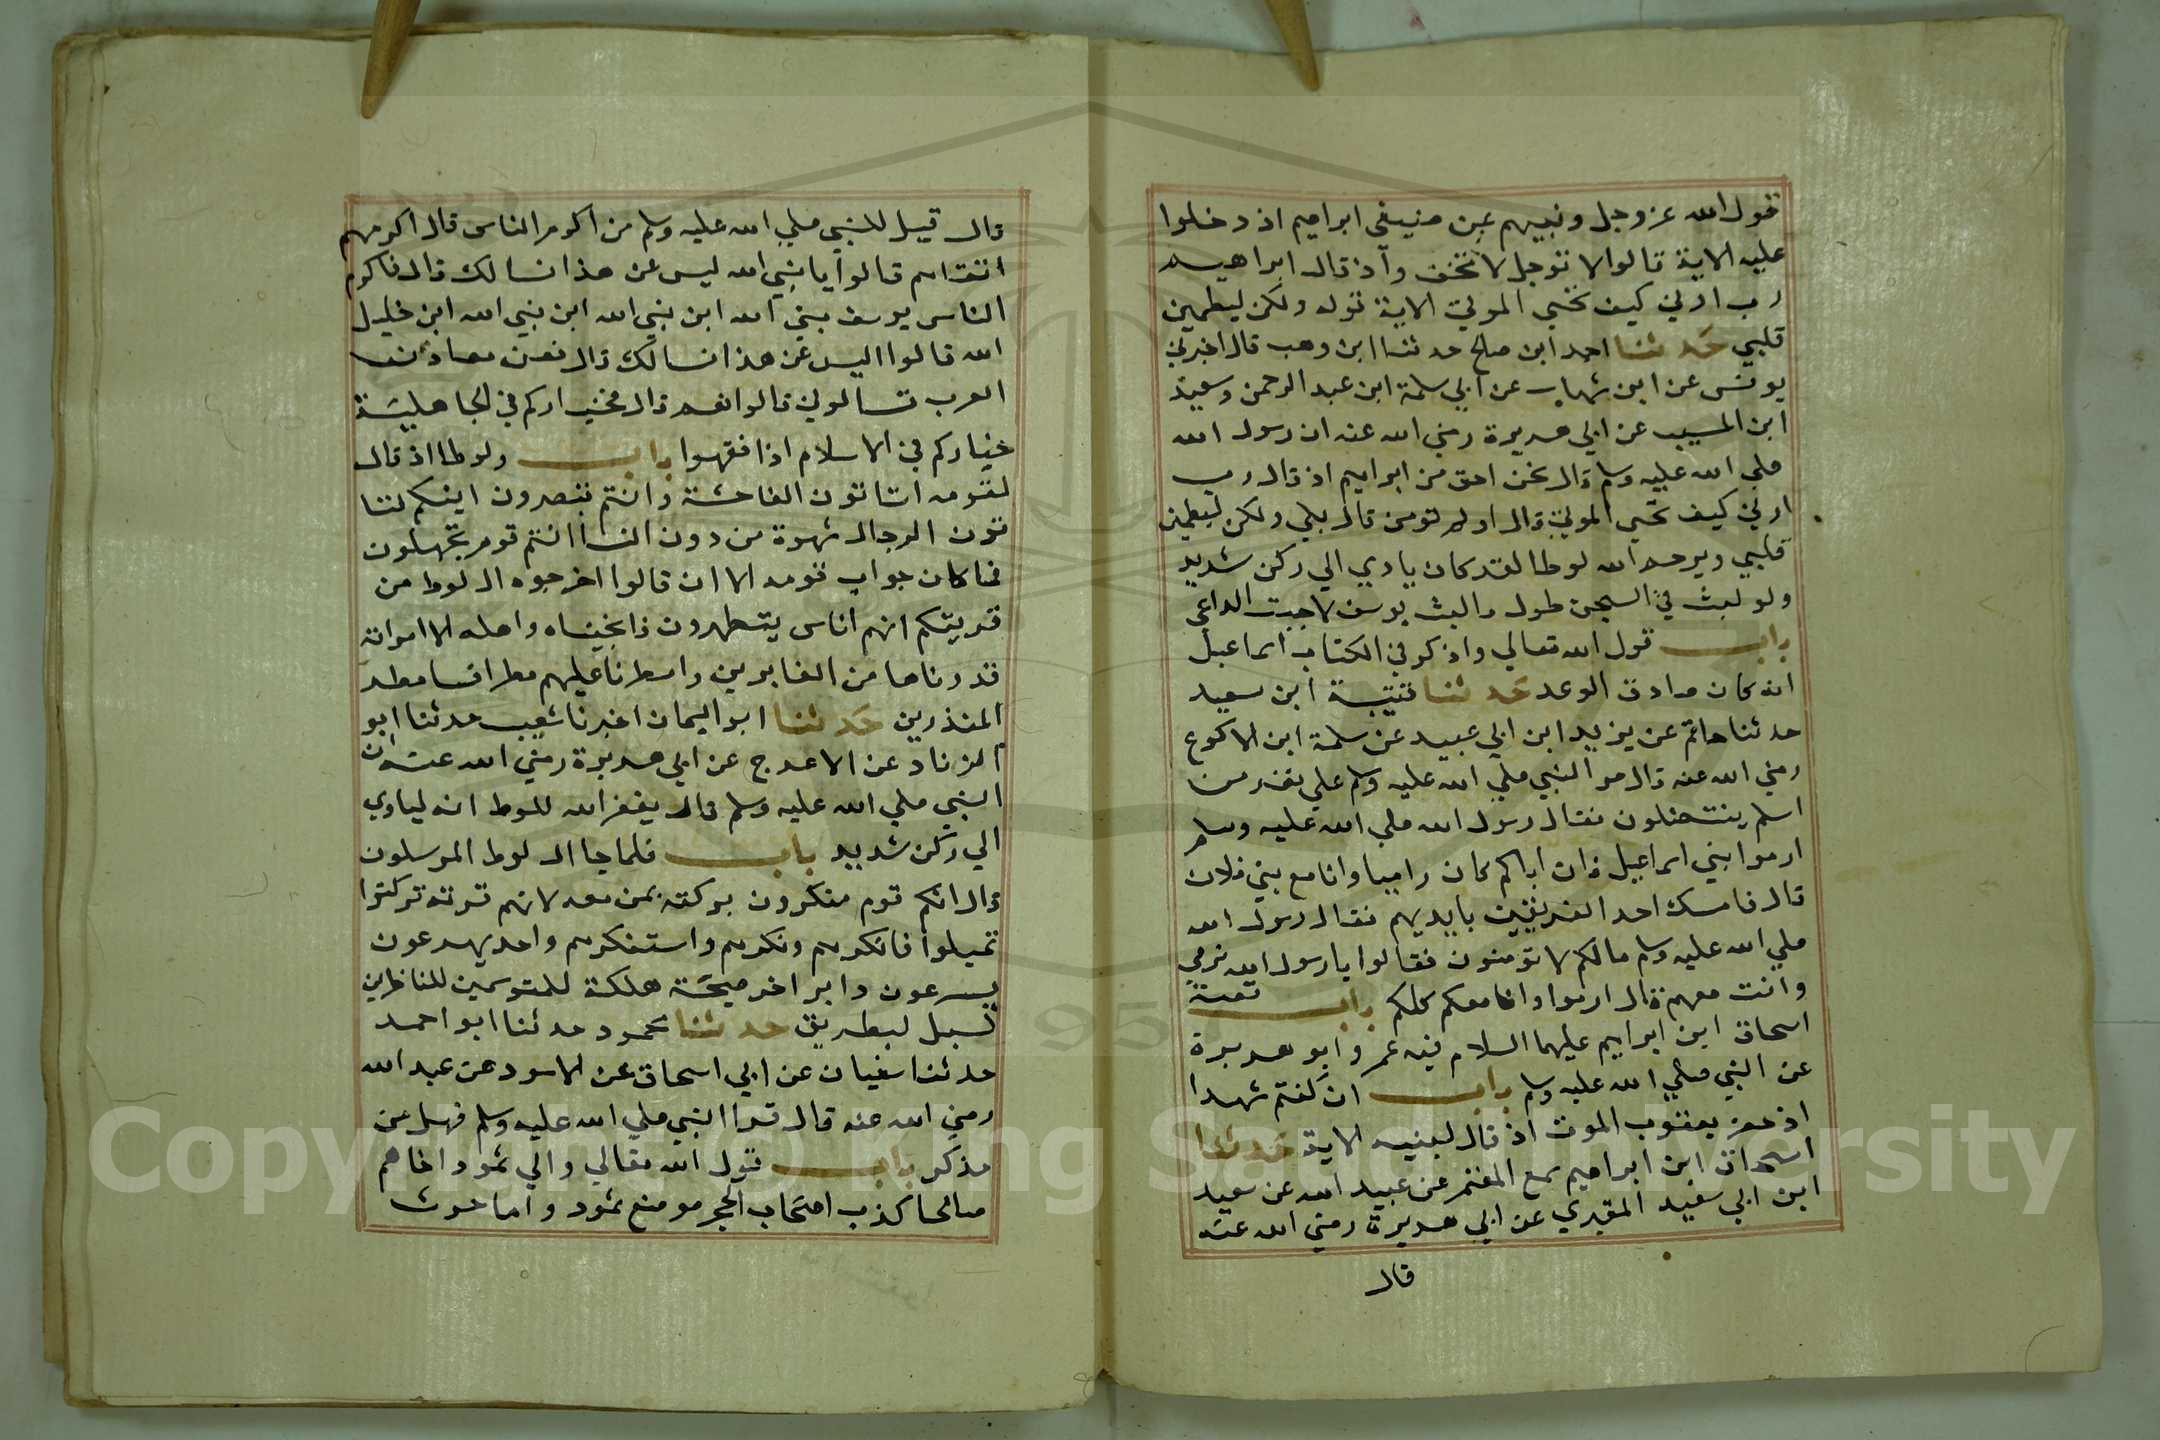 قول الله عز وجل ونبيهم عن ضيف ابراهيم اذ دخلوا
عليه الاية قالوا لا توجل لا تخف واذ قال ابراهيم
رب ارني كيف تحيي الموتي الاية قوله ولكن ليطمين
قلبي حدثنا احمد ابن صالح حدثنا ابن وهب قال اخبرني
يونس عن ابن شهاب عن ابي سلمة ابن عبد الرحمن وسعيد
ابن المسيب عن ابي هريرة رضي الله عنه ان رسول الله
صلي الله عليه وسلم قال نحن احق من ابراهيم اذ قال رب
ارني كيف تحيي الموتي قال اولم تومن قال بلي ولكن ليطمين
قلبي ويرحم الله لوطا لقد كان ياوي الي ركن شديد
ولو لبثت في السجن طول ما لبث يوسف لاجبت الداعي
باب قول الله تعالي واذكر في الكتاب اسماعيل
انه كان صادق الوعد حدثنا قتيبة ابن سعيد
حدثنا حاتم عن يزيد ابن ابي عبيد عن سلمة ابن الاكوع
رضي الله عنه قال مر النبي صلي الله عليه وسلم علي نفر من
اسلم ينتضلون فقال رسول الله صلي الله عليه وسلم
ارموا بني اسماعيل فان اباكم كان راميا وانا مع بني فلان
قال فامسك احد الفريقين بايديهم فقال رسول الله
صلي الله عليه وسلم مالكم لا تومنون فقالوا يا رسول الله نرمي
وانت معهم قال ارموا وانا معكم كلكم باب قصة
اسحاق ابن ابراهيم عليهما السلام فيه عمر وابو هريرة
عن النبي صلي الله عليه وسلم باب ان كنتم شهدا
اذ حضر يعقوب الموت اذ قال لبنيه الاية حدثنا
اسحاق ابن ابراهيم سمع المغتمر عن عبيد الله عن سعيد
ابن ابي سعيد المقبري عن ابي هريرة رضي الله عنه
قال
قال قيل للنبي صلي الله عليه وسلم من اكرم الناس قال اكرمهم
اتقاهم قالوا يا نبي الله ليس عن هذا نسالك قال فاكرم
الناس يوسف نبي الله ابن نبي الله ابن نبي الله ابن خليل
الله قالوا اليس عن هذا نسالك قال فعن معادن
العرب تسالوني قالوا نعم قال فخياركم في الجاهلية
خياركم في الاسلام اذا فقهوا باب ولوطا اذ قال
لقومه اتاتون الفاحشة وانتم تبصرون اينكم لتا
تون الرجال شهوة من دون النسا انتم قوم تجهلون
فما كان جواب قومه الا ان قالوا اخرجوه ال لوط من
قريتكم انهم اناس يتطهرون فانجيناه واهله الا امراته
قدرناها من الغابرين وامطرنا عليهم مطرا فسا مطر
المنذرين حدثنا ابو اليمان اخبرنا شعيب حدثنا ابو
الزناد عن الاعرج عن ابي هريرة رضي الله عنه ان
النبي صلي الله عليه وسلم قال يغفر الله للوط انه لياوي
الي ركن شديد باب فلما جا ال لوط المرسلون
قال انكم قوم منكرون بركنه بمن معه لانهم قوته تركنوا
تميلوا فانكرهم ونكرهم واستنكرهم واحد يهرعون
يسرعون دابر اخر صيحة هلكة للمتوسمين للناظرين
لسبيل لبطريق حدثنا محمود حدثنا ابو احمد
حدثنا سفيان عن ابي اسحاق عن الاسود عن عبد الله
رضي الله عنه قال قرا النبي صلي الله عليه وسلم فهل من
مذكر باب قول الله تعالي والي ثمود اخاهم
صالحا كذب اصحاب الحجر موضع ثمود واما حرث
Copyright © King Saud University